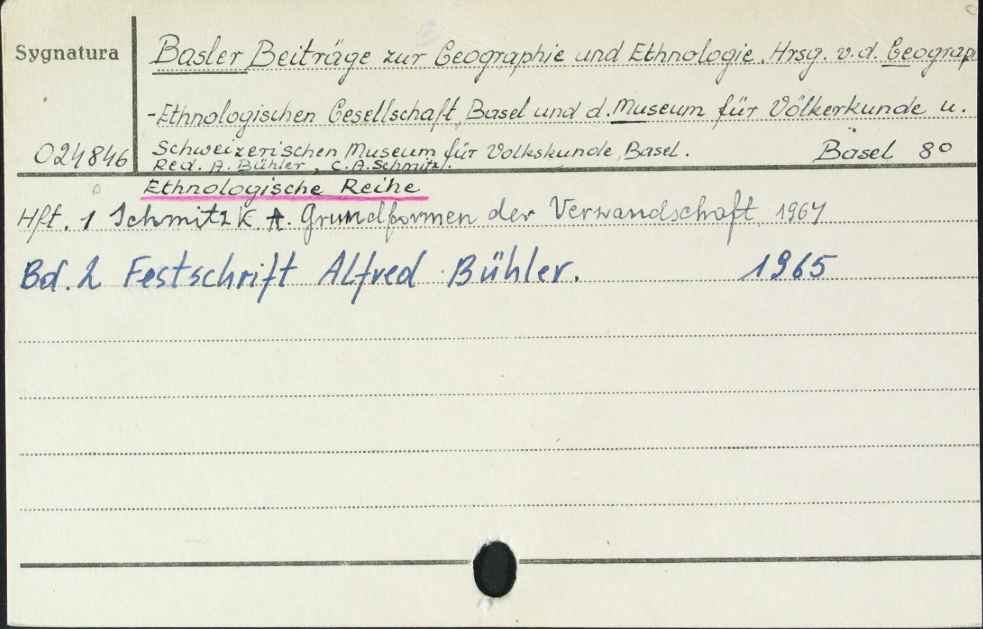 Sygnatura
Basler Beiträge zur Geographie und Ethnologie. Hrsg. v. d. Geograp
-Ethnologischen Gesellschaft, Basel und d. Museum für Völkerkunde u.
024846 Schweizerischen Museum für Volkskunde, Basel. Basel 8º
Red. A. Bühler, C. A. Schmitz.
Ethnologische Reihe
Hft. 1 Schmitz K. A. Grundformen der Verwandschaft 1964
Bd. 2 Festschrift Alfred Bühler. 1965